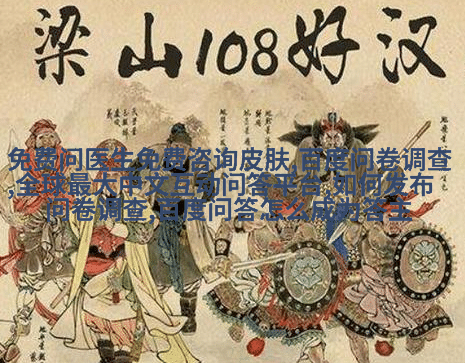 梁山108好汉
免费问医生免费咨询皮肤,百度问券调查
,全球最大中文互动问答平台,如何发布
问卷调查,百度问答怎么成为答主